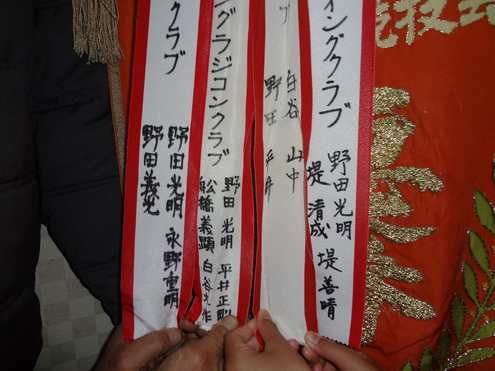 イングクラブ
野田光明
堤清成 堤善晴
ブ
白谷 山中
野田 平井
ングラジコンクラブ
野田光明 平井正剛
船橋義顕 白谷
クラブ
野田光明 永野重明
野田義光